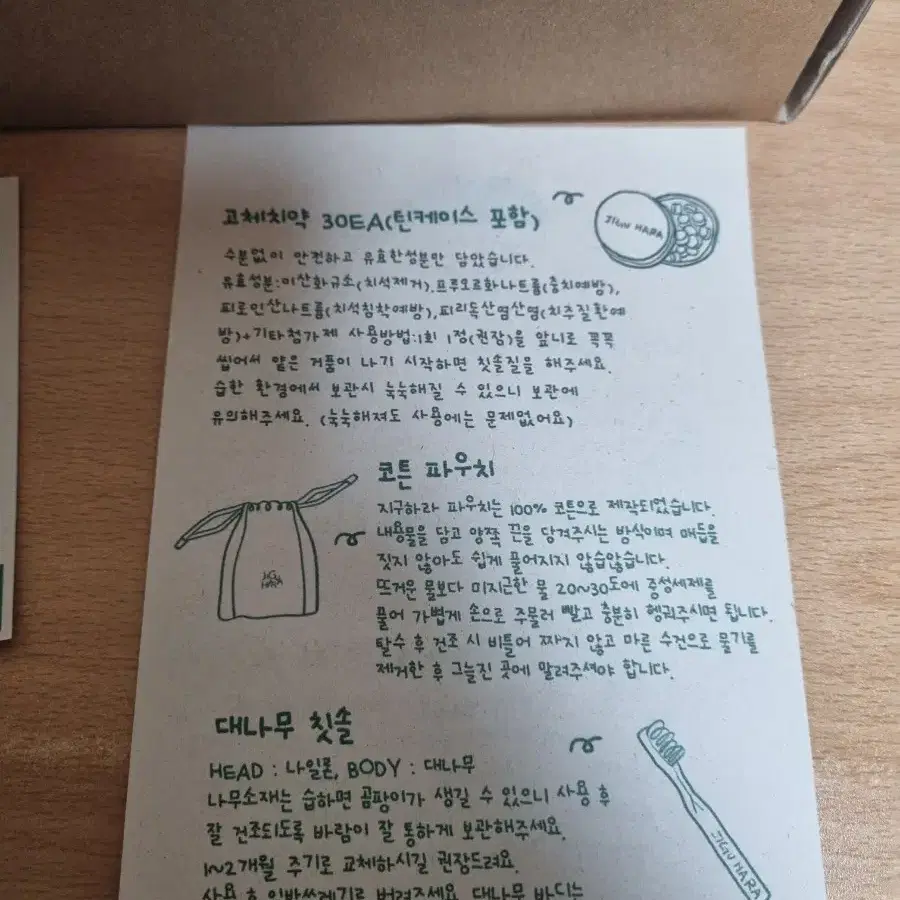 고체치약 30EA(틴케이스 포함)
JIGU HARA
수분없이 안전하고 유효한성분만 담았습니다.
유효성분:이산화규소(치석제거),프루오르화나트륨(충치예방),
피로인산나트륨(치석침착예방),피리독산염산염(치주질환예
방)+기타첨가제 사용방법:1회 1정(권장)을 앞니로 꼭꼭
씹어서 얕은 거품이 나기 시작하면 칫솔질을 해주세요.
습한 환경에서 보관시 눅눅해질 수 있으니 보관에
유의해주세요. (눅눅해져도 사용에는 문제없어요)
코튼 파우치
지구하라 파우치는 100% 코튼으로 제작되었습니다.
내용물을 담고 양쪽 끈을 당겨주시는 방식이며 매듭을
짓지 않아도 쉽게 풀어지지 않습않습니다.
뜨거운 물보다 미지근한 물 20~30도에 중성세제를
풀어 가볍게 손으로 주물러 빨고 충분히 헹궈주시면 됩니다.
탈수 후 건조 시 비틀어 짜지 않고 마른 수건으로 물기를
제거한 후 그늘진 곳에 말려주셔야 합니다.
JIGU
HARA
대나무 칫솔
HEAD : 나일론, BODY : 대나무
나무소재는 습하면 곰팡이가 생길 수 있으니 사용 후
잘 건조되도록 바람이 잘 통하게 보관해주세요.
1~2개월 주기로 교체하시길 권장드려요.
사용 후 일반쓰레기로 버려주세요. 대나무 바디는
JIGU HARA